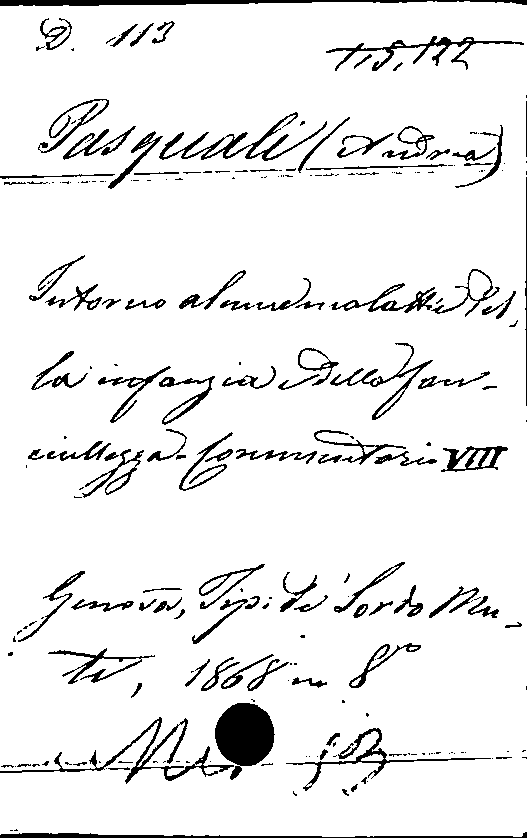 D. 113
115,122
Pasquali (Andrea)
Intorno alcune malattie del-
la infanzia e della fan-
ciullezza. Commentario VIII
Genova, Tip: de' Sordo Mu-
ti, 1868 in 8vo